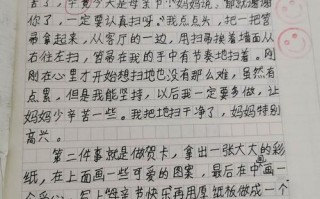 去了，于是今天是母亲节，妈妈说：那就谢谢
你了，一定要认真扫呀。"我点点头，把一把管
易拿起来，从客厅的一边，用扫易挨着墙面从
右往左扫，管易在我的手中有节奏地扫着。刚
刚在心里才开始想扫地也没有那么难，虽然有
点累，但是我能坚持，以后我一定要多做，让
妈妈少辛苦一些。我把地扫干净了，妈妈特别
高兴。
第二件事就是做贺卡，拿出一张大大的彩
纸，在上面画一些可爱的图案，最后在中画一
个爱心，写上"母亲节快乐"再用厚纸板做成一个